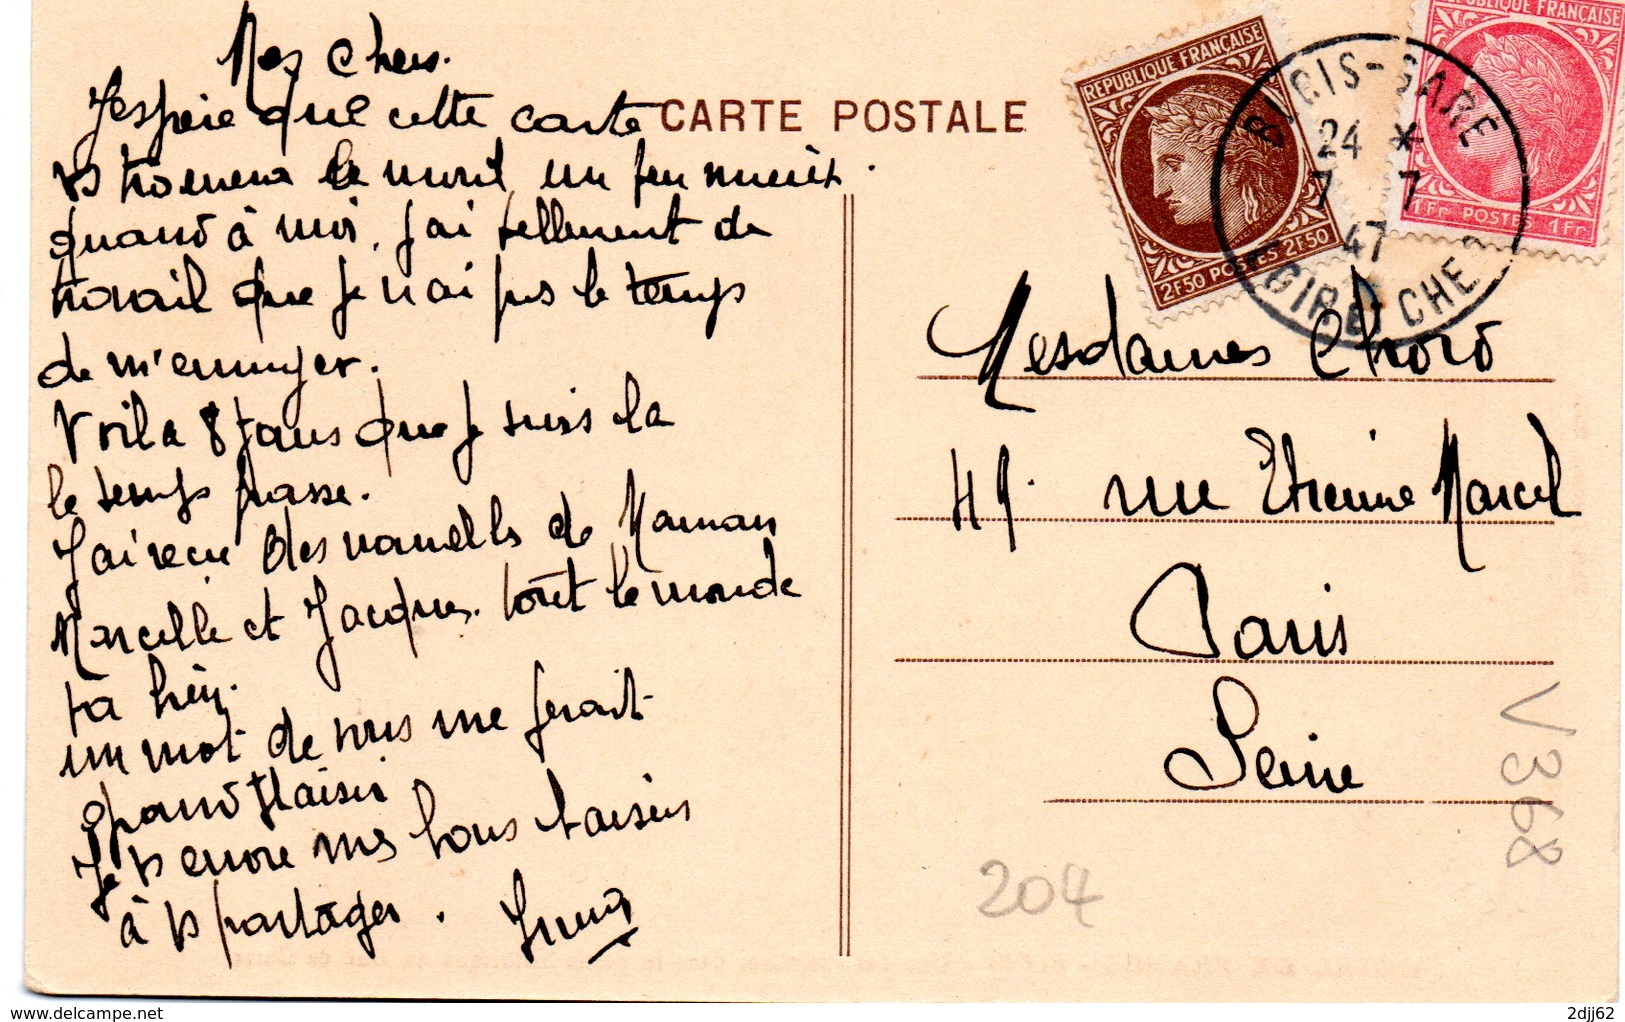 Mes chers.
J'espère que cette carte
vs trouvera le moral un peu mieux.
quand à moi, j'ai tellement de
travail que je n'ai pas le temps
de m'ennuyer.
Voila 8 jours que je suis la
le temps passe.
J'ai recu des nouvelles de Maman
Marcelle et Jacques. tout le monde
va bien.
un mot de vous me ferait
grand plaisir
Je vs envoie mes bons baisers
à vs partager.
CARTE POSTALE
REPUBLIQUE FRANÇAISE
2F50 POSTES 2F50
REPUBLIQUE FRANÇAISE
1Fr POSTES 1Fr
BLOIS-GARE
24 *
7 7
47
LOIR-ET-CHER
Mesdames
49. rue Etienne Marcel
Paris
Seine
V368
204
delcampe.net
2djj62